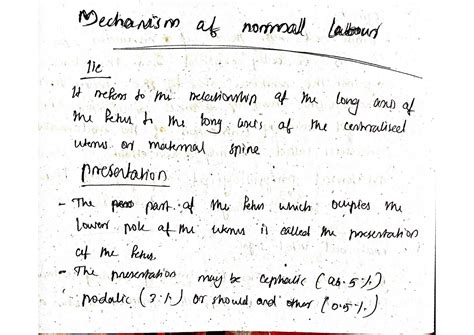 Mechanism of normall labour
lie
It refers to the relationship of the long axis of
the fetus to the long axis of the centralised
uterus or maternal spine
presentation
- The part of the fetus which ocupies the
lower pole of the uterus is called the presentation
of the fetus.
- The presentation may be cephalic (96.5%)
podalic (3%) or should and other (0.5%)